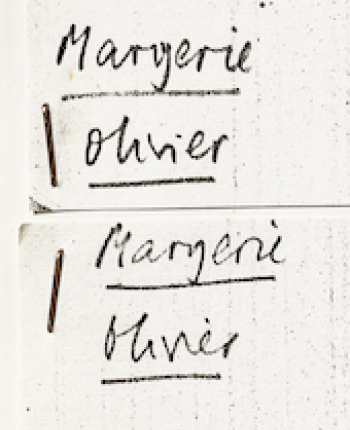 Margerie
Olivier
Margerie
Olivier